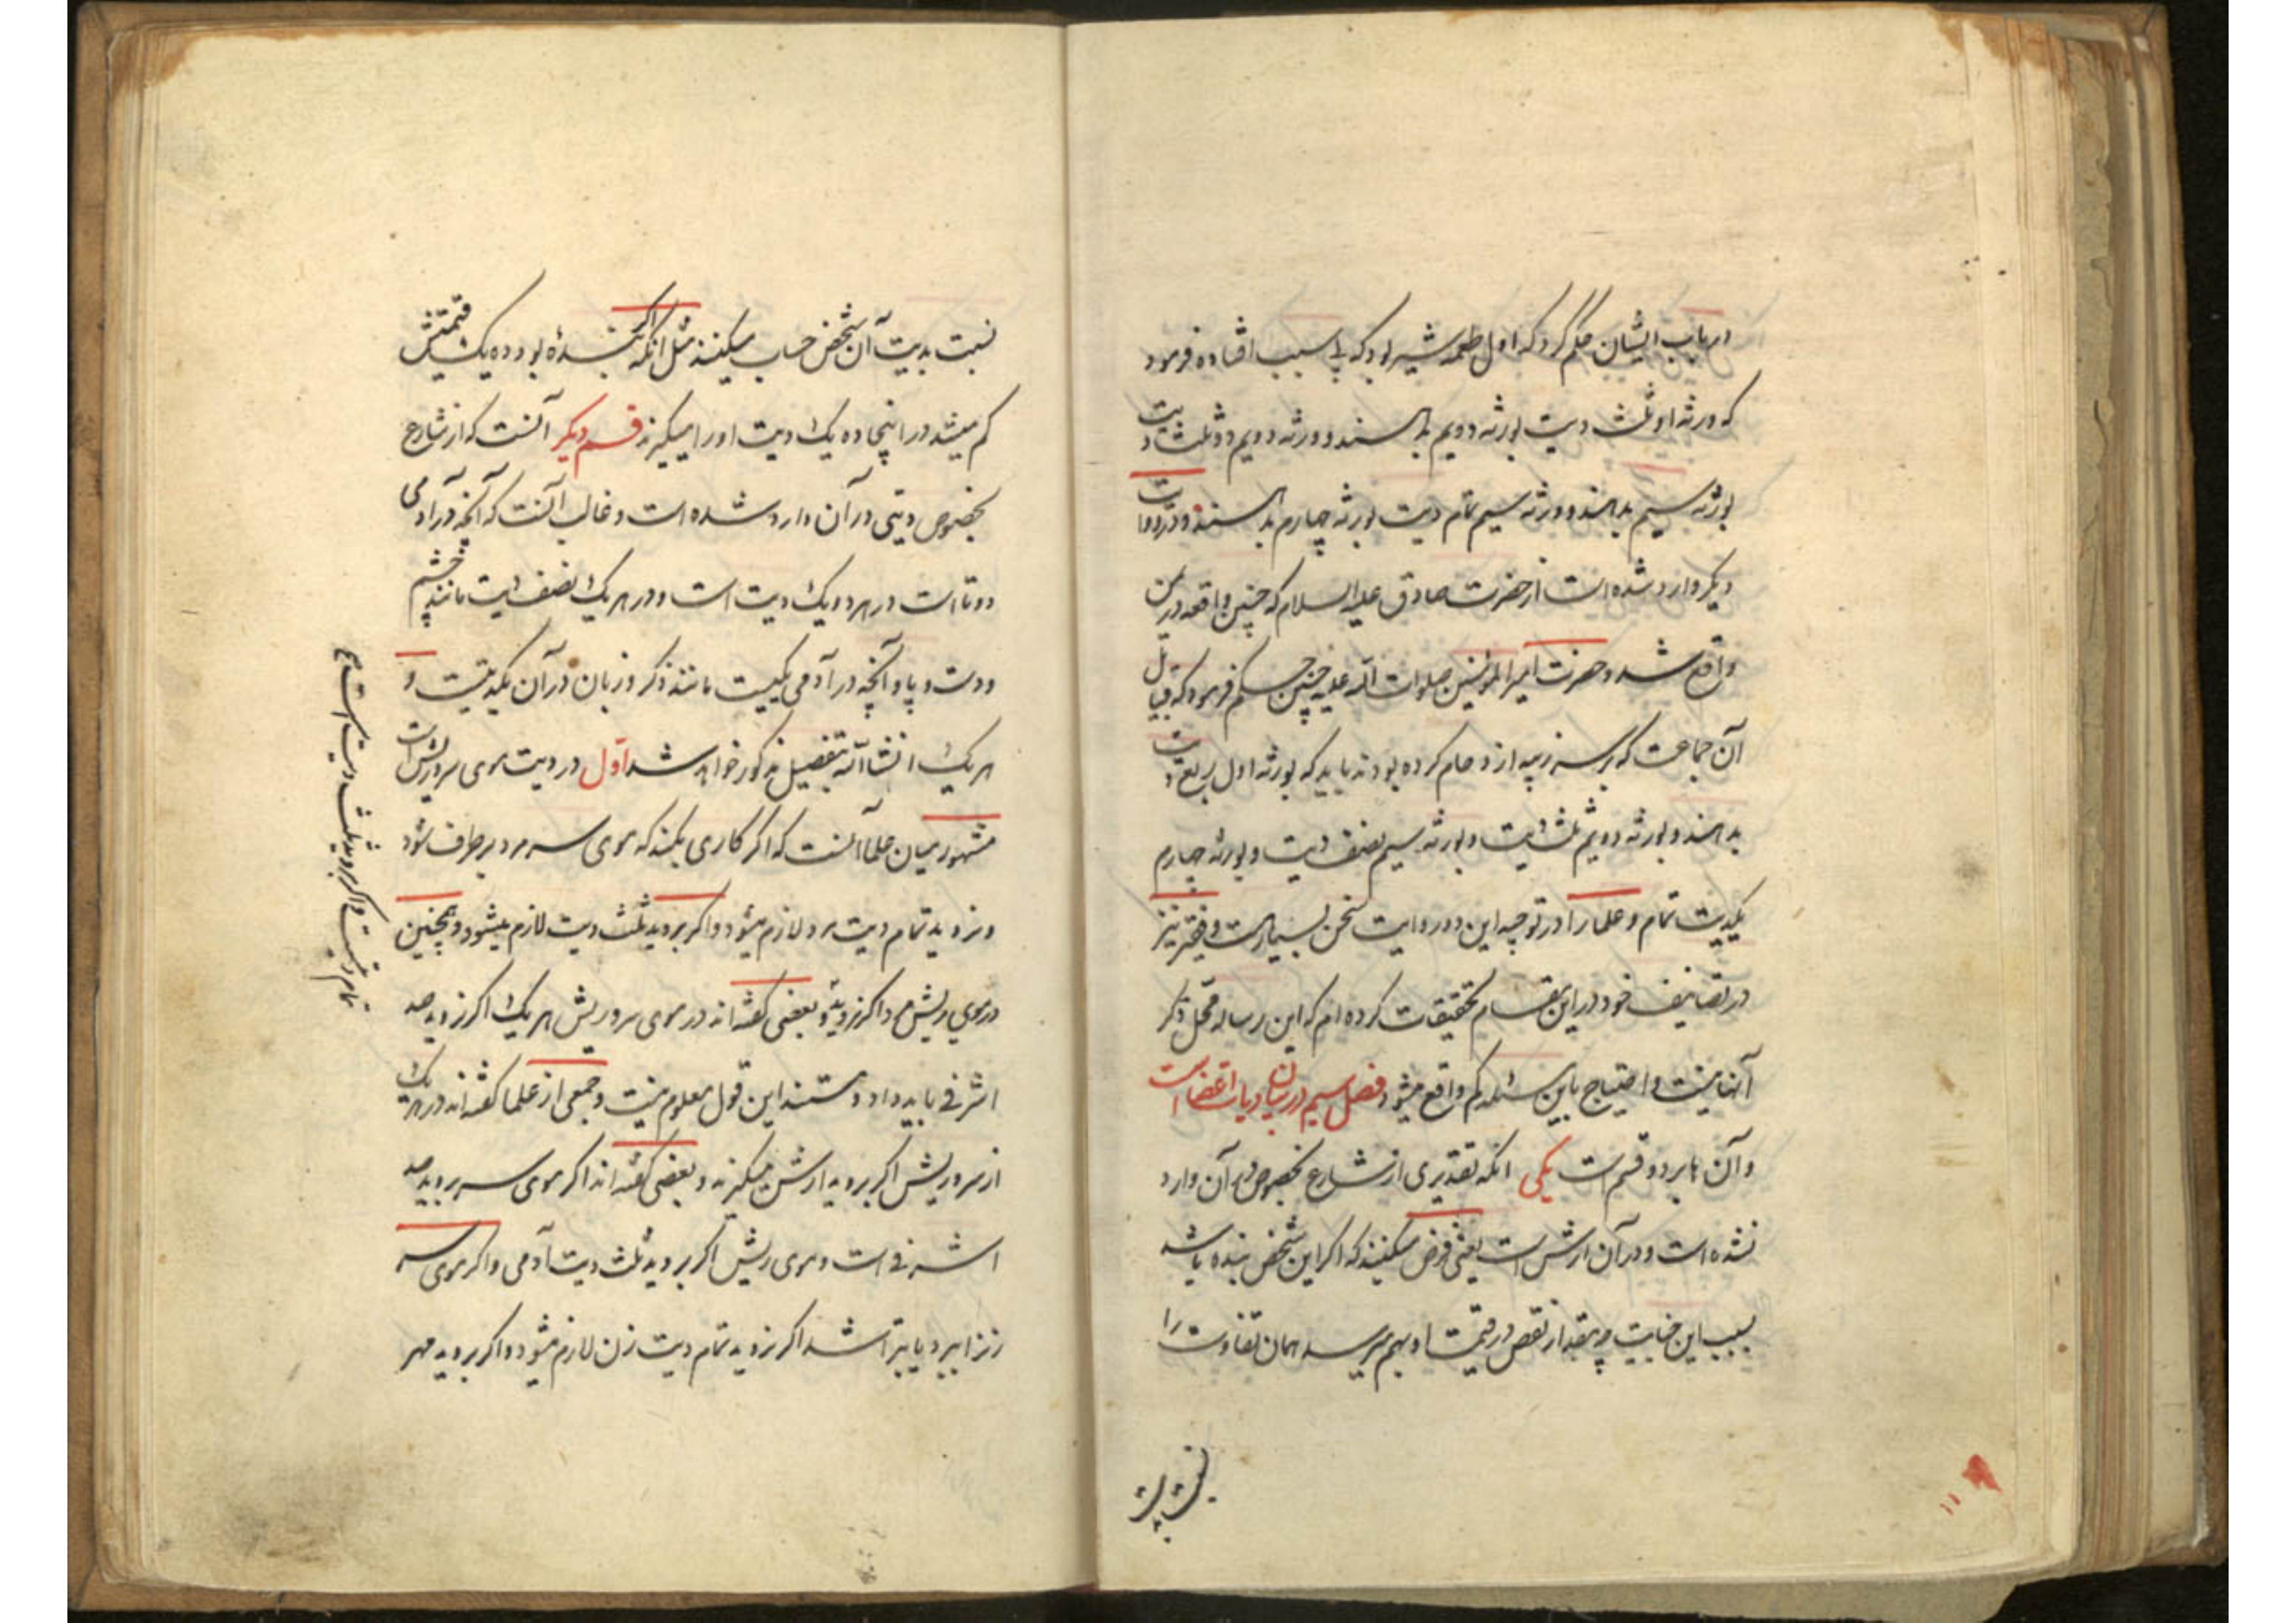 در باب ایشان حکم کرد که اول طعمه شیر بود که بی سبب افتاده فرمود
که ورثه او ثلث دیت بورثه دویم بدهند و ورثه دویم دو ثلث دیت
بورثه سیم بدهند و ورثه سیم تمام دیت بورثه چهارم بدهند و در روایت
دیکر وارد شده است از حضرت صادق علیه السلام که چنین واقعه در یمن
واقع شد و حضرت امیر المؤمنین صلوات الله علیه چنین حکم فرمود که قبایل
آن جماعت که بر سر زبیه ازدحام کرده بودند باید که بورثه اول ربع دیت
بدهند و بورثه دویم ثلث دیت و بورثه سیم نصف دیت و بورثه چهارم
یکدیت تمام و علما را در توجیه این دو روایت سخن بسیارست و فقیر نیز
در تصانیف خود در این مقام تحقیقات کرده ام که این رساله محل ذکر
آنها نیست و احتیاج باین مسئله کم واقع میشود فصل سیم در بیان دیات اعضا است
و آن ها بر دو قسم است یکی انکه تقدیری از شارع بخصوص در آن وارد
نشده است و در آن ارش است یعنی فرض میکنند که اکر این شخص بنده باشد
بسبب این جنایت چه مقدار نقص در قیمت او بهم میرسد همان تفاوت را
نسبت بدیت
نسبت بدیت آن شخص حساب میکنند مثل انکه اکر بندهٔ بود ده یک قیمتش
کم میشد در اینجا ده یک دیت او را میکیرند قسم دیکر آنست که از شارع
بخصوص دیتی در آن وارد شده است و غالب آنست که آنچه در آدمی
دوتا است در هر دو یک دیت است و در هر یک نصف دیت مانند چشم
و دست و پا و آنچه در آدمی یکیست مانند ذکر و زبان در آن یکدیتست و
هر یک انشاالله بتفصیل مذکور خواهد شد اول در دیت موی سر و ریش است
مشهور میان علما آنست که اکر کاری بکند که موی سر مرد برطرف شود
و نروید تمام دیت مرد لازم میشود و اکر بروید ثلث دیت لازم میشود و همچنین
در موی ریش م و اکر نروید و بعضی کفته اند در موی سر و ریش هر یک اکر نروید صد
اشرفی باید داد و مستند این قول معلوم نیست و جمعی از علما کفته اند در هر یک
از سر و ریش اکر بروید ارش میکیرند و بعضی کفته اند اکر موی سر بروید صد
اشرفی است و موی ریش اکر بروید ثلث دیت آدمی و اکر موی سر
زنرا ببرد یا بتراشد اکر نروید تمام دیت زن لازم میشود و اکر بروید مهر
تمام دیتست و اکر بروید ثلث دیت است